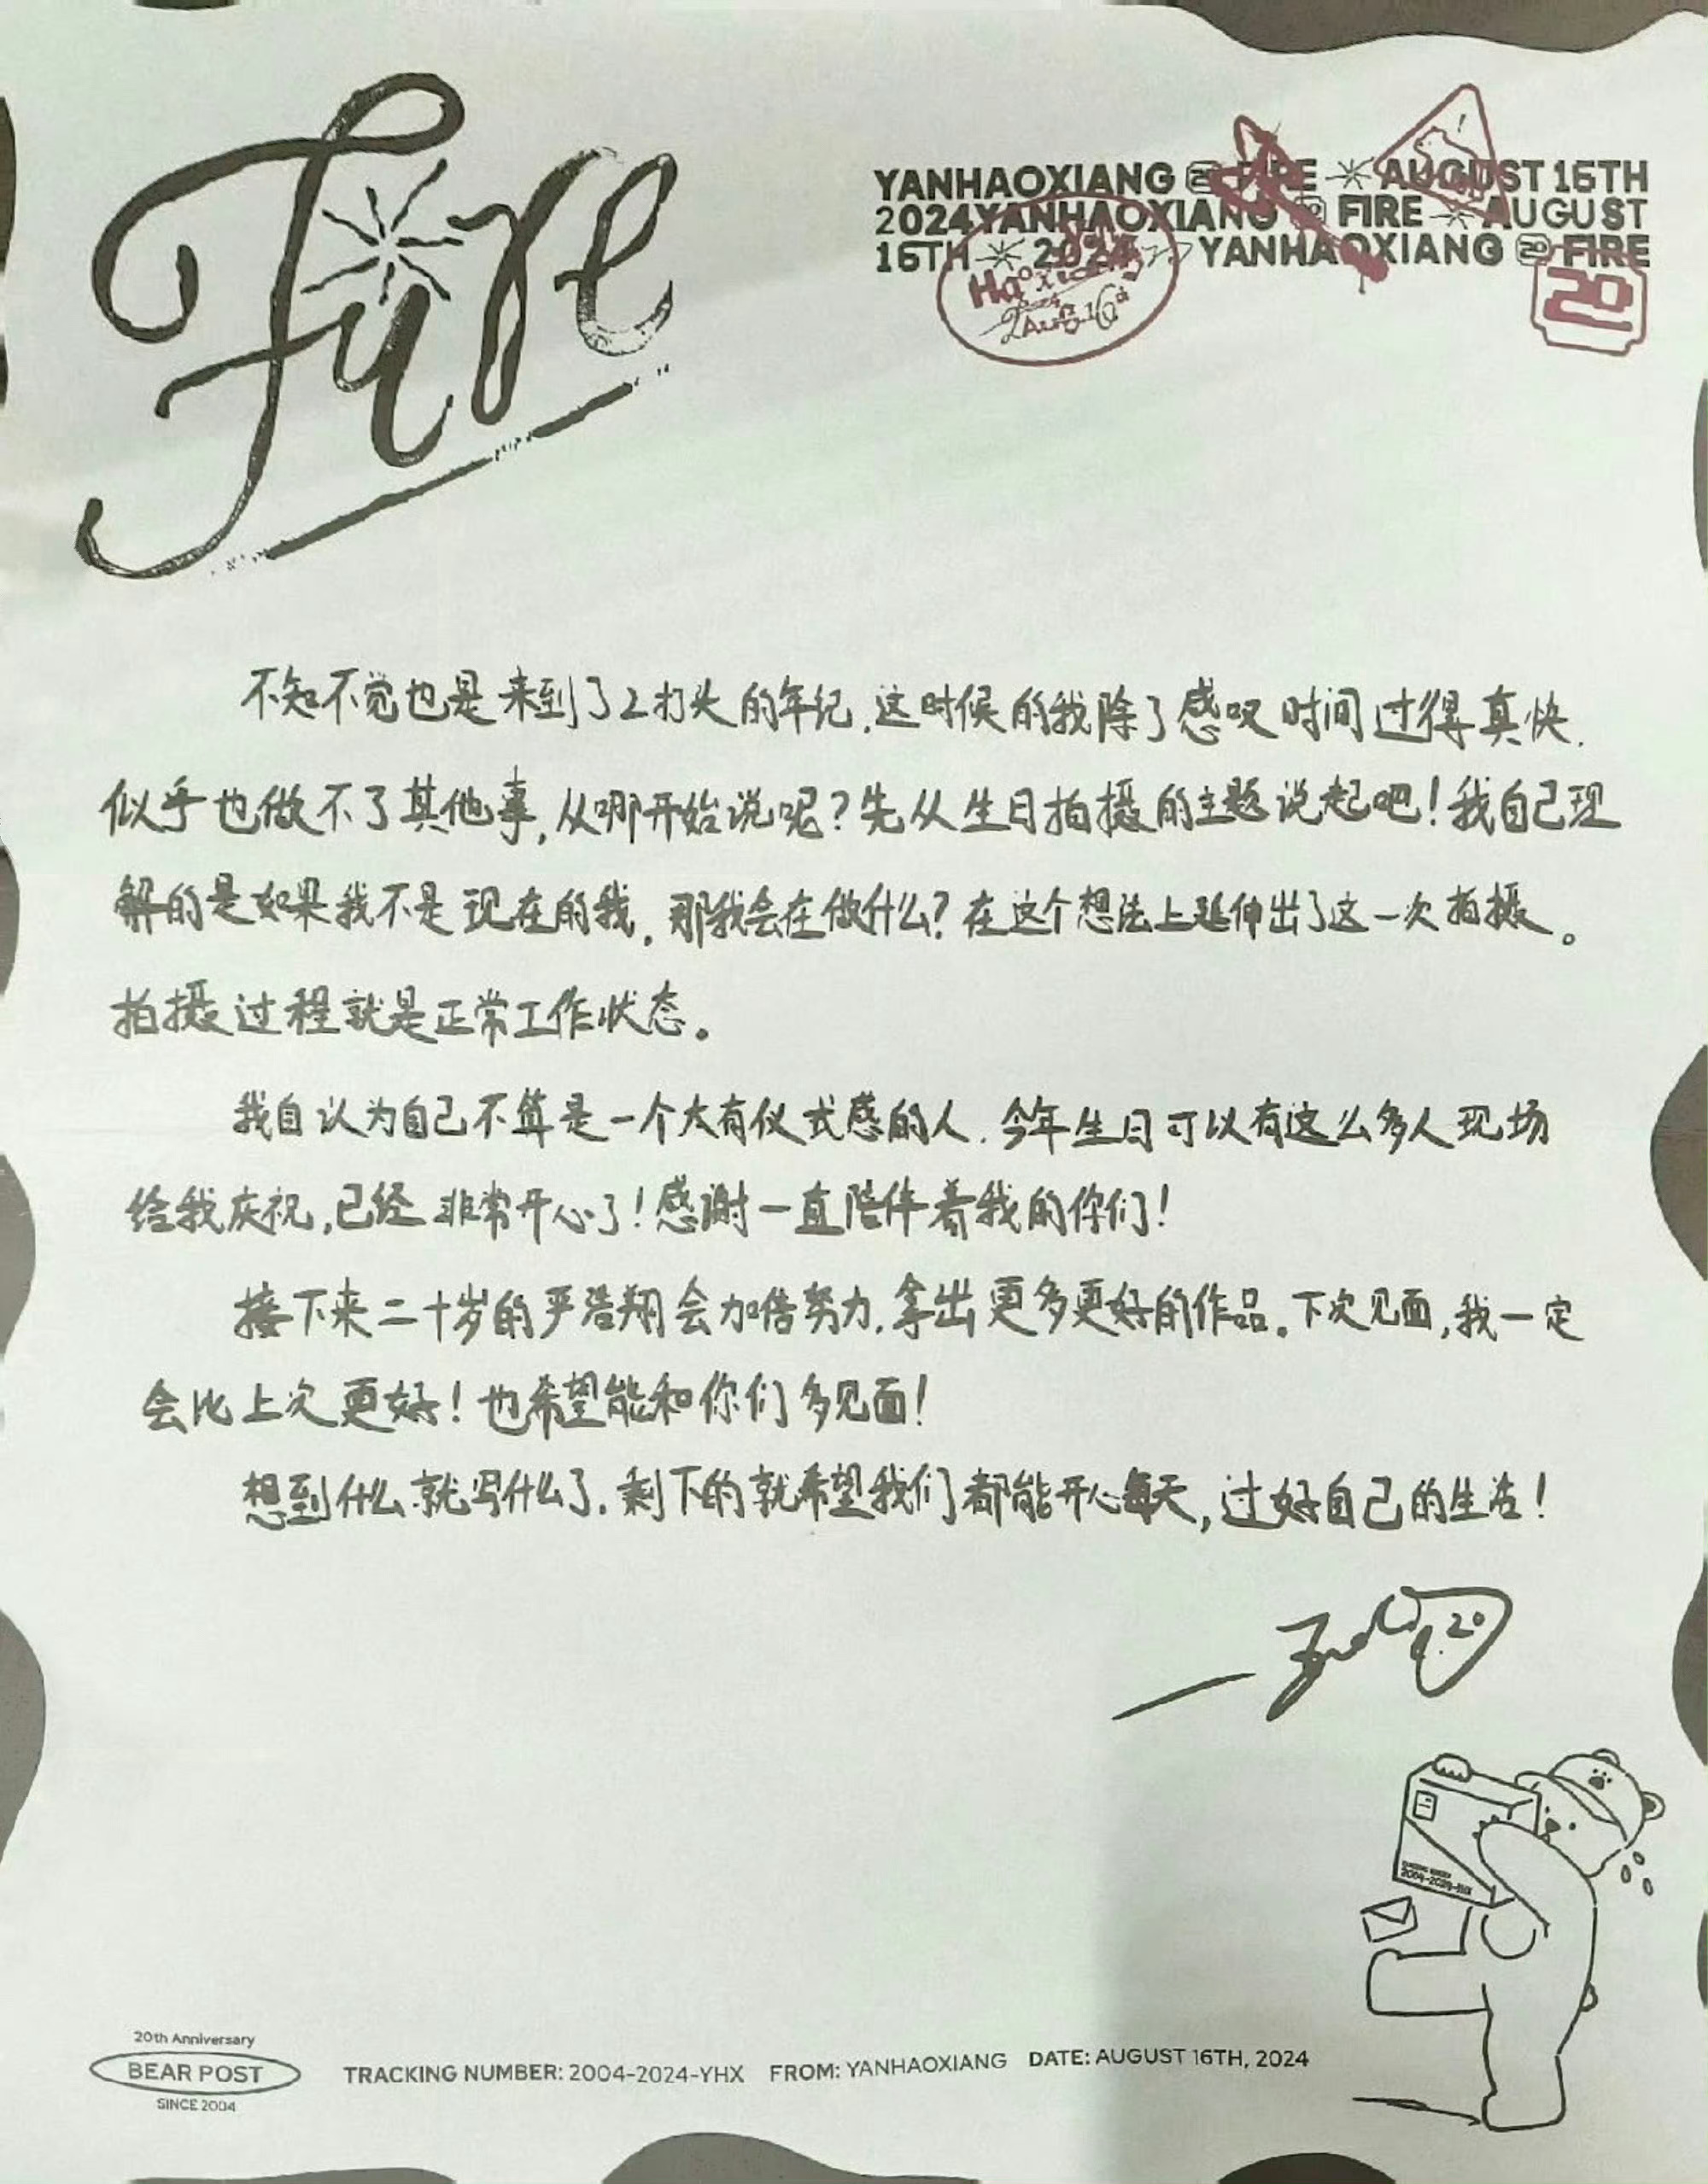 Fire
YANHAOXIANG 20 FIRE AUGUST 16TH
2024 YANHAOXIANG 20 FIRE AUGUST
16TH 2024 YANHAOXIANG 20 FIRE
Aug 16th
20
不知不觉也是来到了2打头的年纪,这时候的我除了感叹时间过得真快,
似乎也做不了其他事,从哪开始说呢?先从生日拍摄的主题说起吧!我自己理
解的是如果我不是现在的我,那我会在做什么?在这个想法上延伸出了这一次拍摄。
拍摄过程就是正常工作状态。
我自认为自己不算是一个太有仪式感的人,今年生日可以有这么多人现场
给我庆祝,已经非常开心了!感谢一直陪伴着我的你们!
接下来二十岁的严浩翔会加倍努力,拿出更多更好的作品。下次见面,我一定
会比上次更好!也希望能和你们多见面!
想到什么就写什么了,剩下的就希望我们都能开心每天,过好自己的生活!
20
2004-2024-YHX
20th Anniversary
BEAR POST
SINCE 2004
TRACKING NUMBER: 2004-2024-YHX FROM: YANHAOXIANG DATE: AUGUST 16TH, 2024